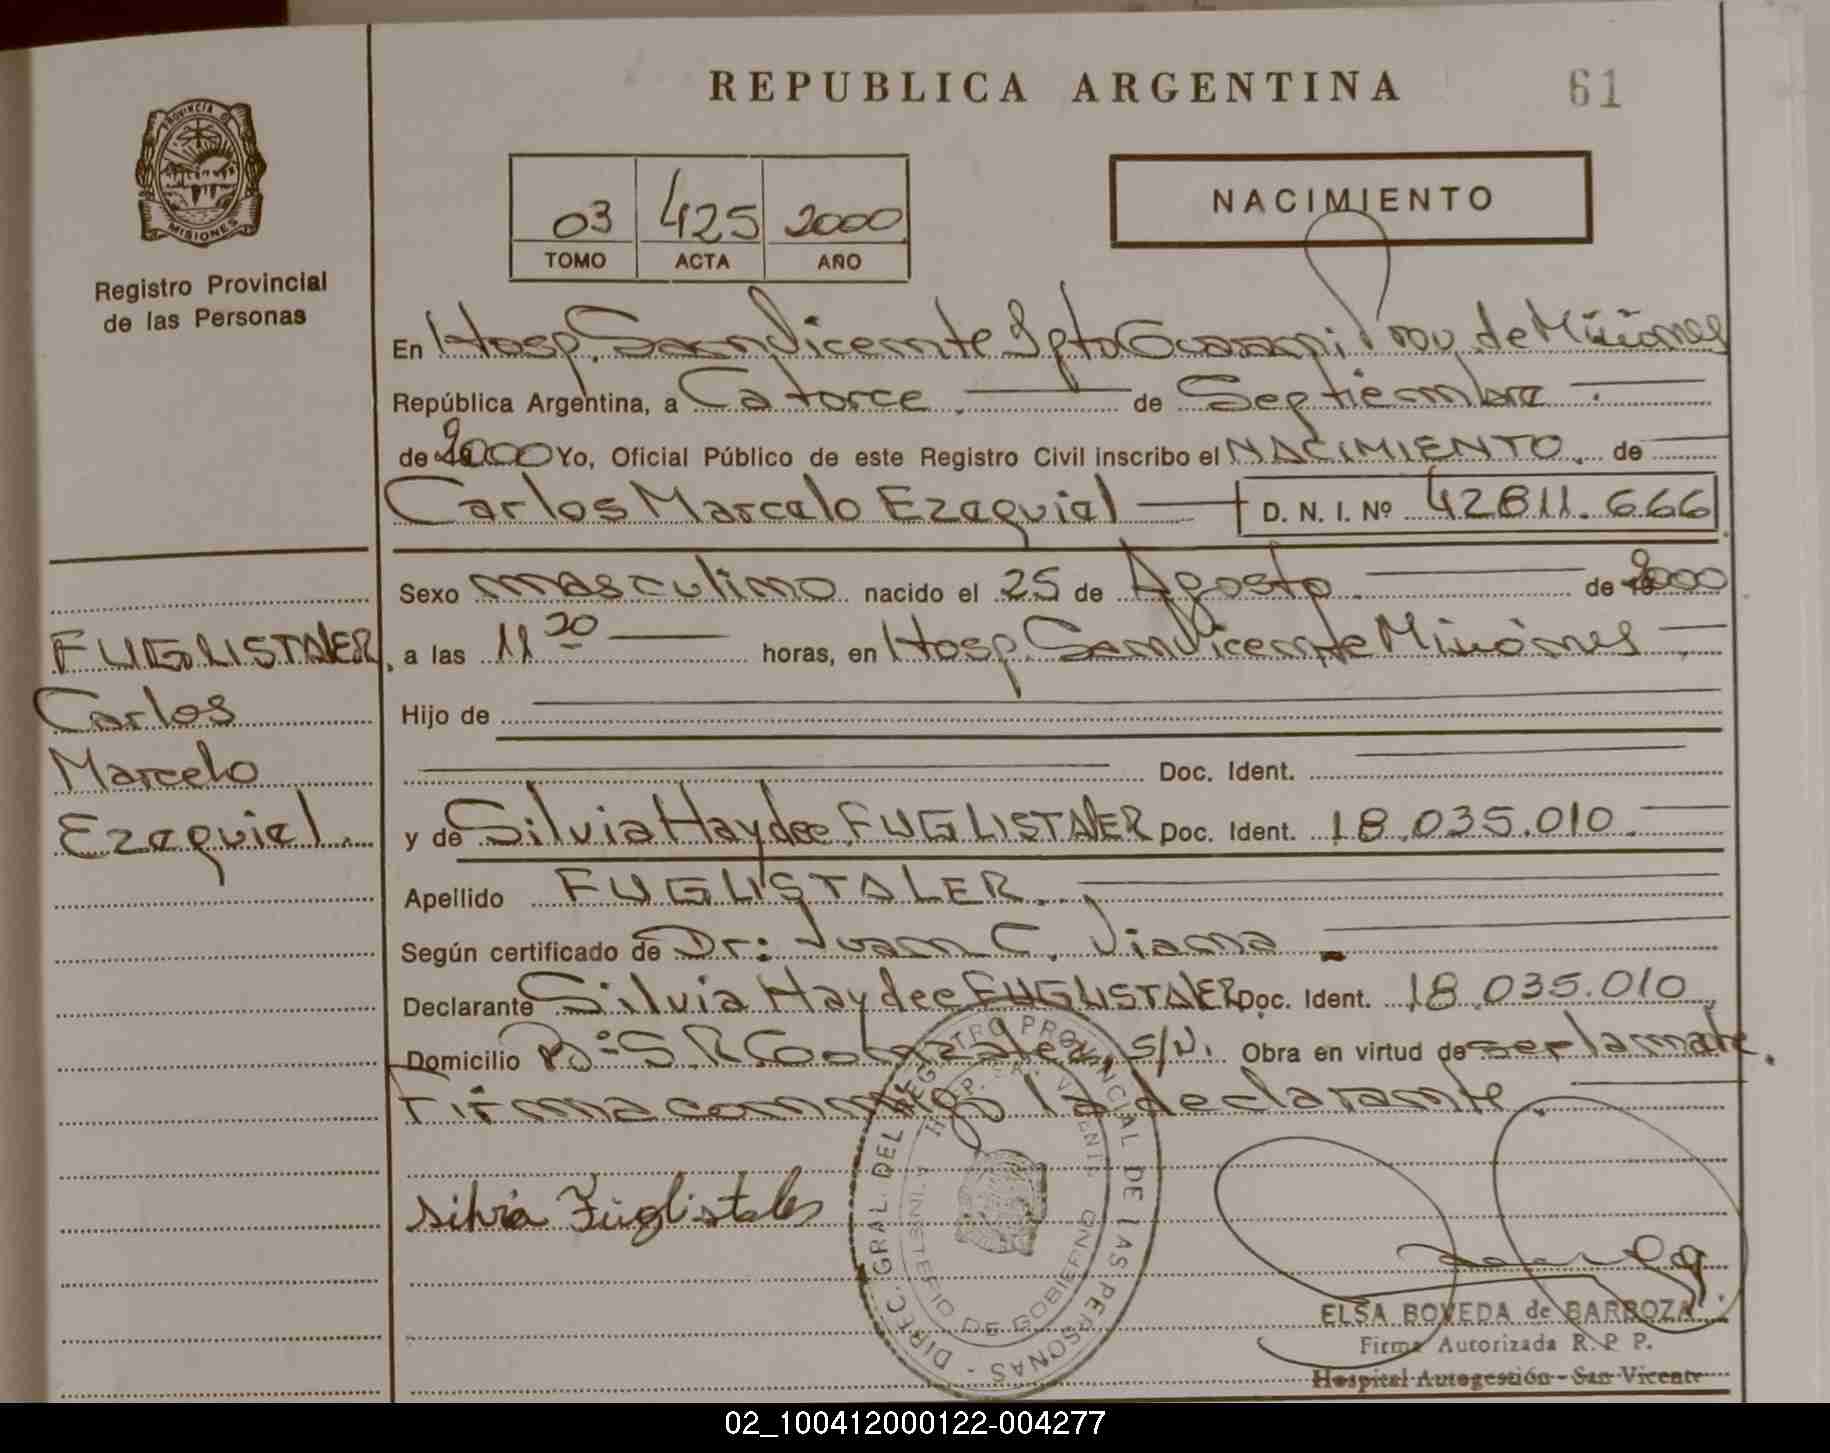 REPUBLICA ARGENTINA
61
PROVINCIA DE MISIONES
Registro Provincial
de las Personas
03 425 2000
TOMO ACTA AÑO
NACIMIENTO
En Hosp. San Vicente Dpto Guarani Prov. de Misiones
República Argentina, a Catorce de Septiembre
de 2000 Yo, Oficial Público de este Registro Civil inscribo el NACIMIENTO de
Carlos Marcelo Ezequiel D. N. I. Nº 42811.666
Sexo masculino nacido el 25 de Agosto de 2000
a las 11 20 horas, en Hosp. San Vicente Misiones
Hijo de
Doc. Ident.
y de Silvia Haydee FUGLISTALER Doc. Ident. 18.035.010
Apellido FUGLISTALER.
Según certificado de Dr: Juan C. Viana
Declarante Silvia Haydee FUGLISTALER Doc. Ident. 18.035.010
Domicilio Bº S.R. Gonzalez, s/N. Obra en virtud de ser la madre.
Firma conmigo la declarante.
FUGLISTALER
Carlos
Marcelo
Ezequiel.
Silvia Fuglistaler
DIREC. GRAL. DEL REGISTRO PROVINCIAL DE LAS PERSONAS
MINISTERIO DE GOBIERNO
ELSA BOVEDA de BARBOZA
Firma Autorizada R. P. P.
Hospital Autogestión - San Vicente
02_100412000122-004277